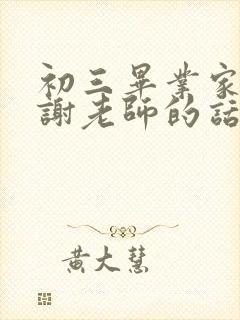 初三畢業家
謝老師的話
黃大慧